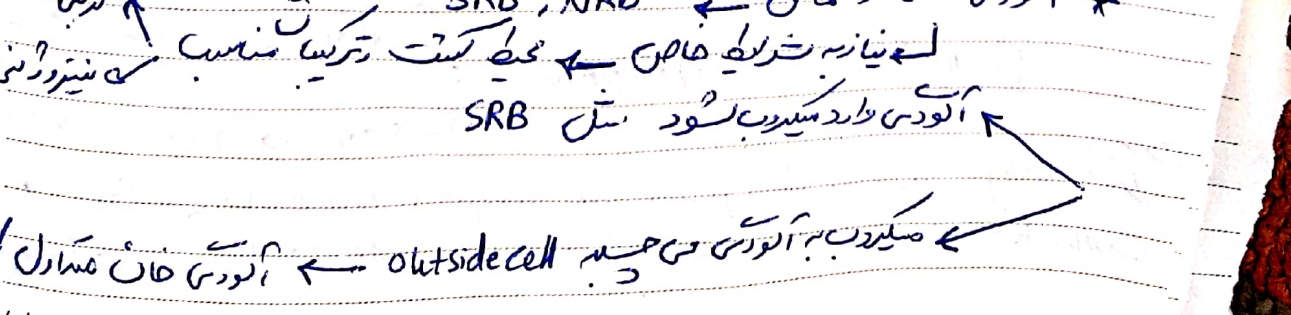 SRB, NRB ←
↳ نیاز به شرایط خاص ← محیط کشت و ترکیبات مناسب
آلودگی وارد میکروب بشود مثل SRB
میکروب به آلودگی می چسبد outside cell ← آلودگی های متداول